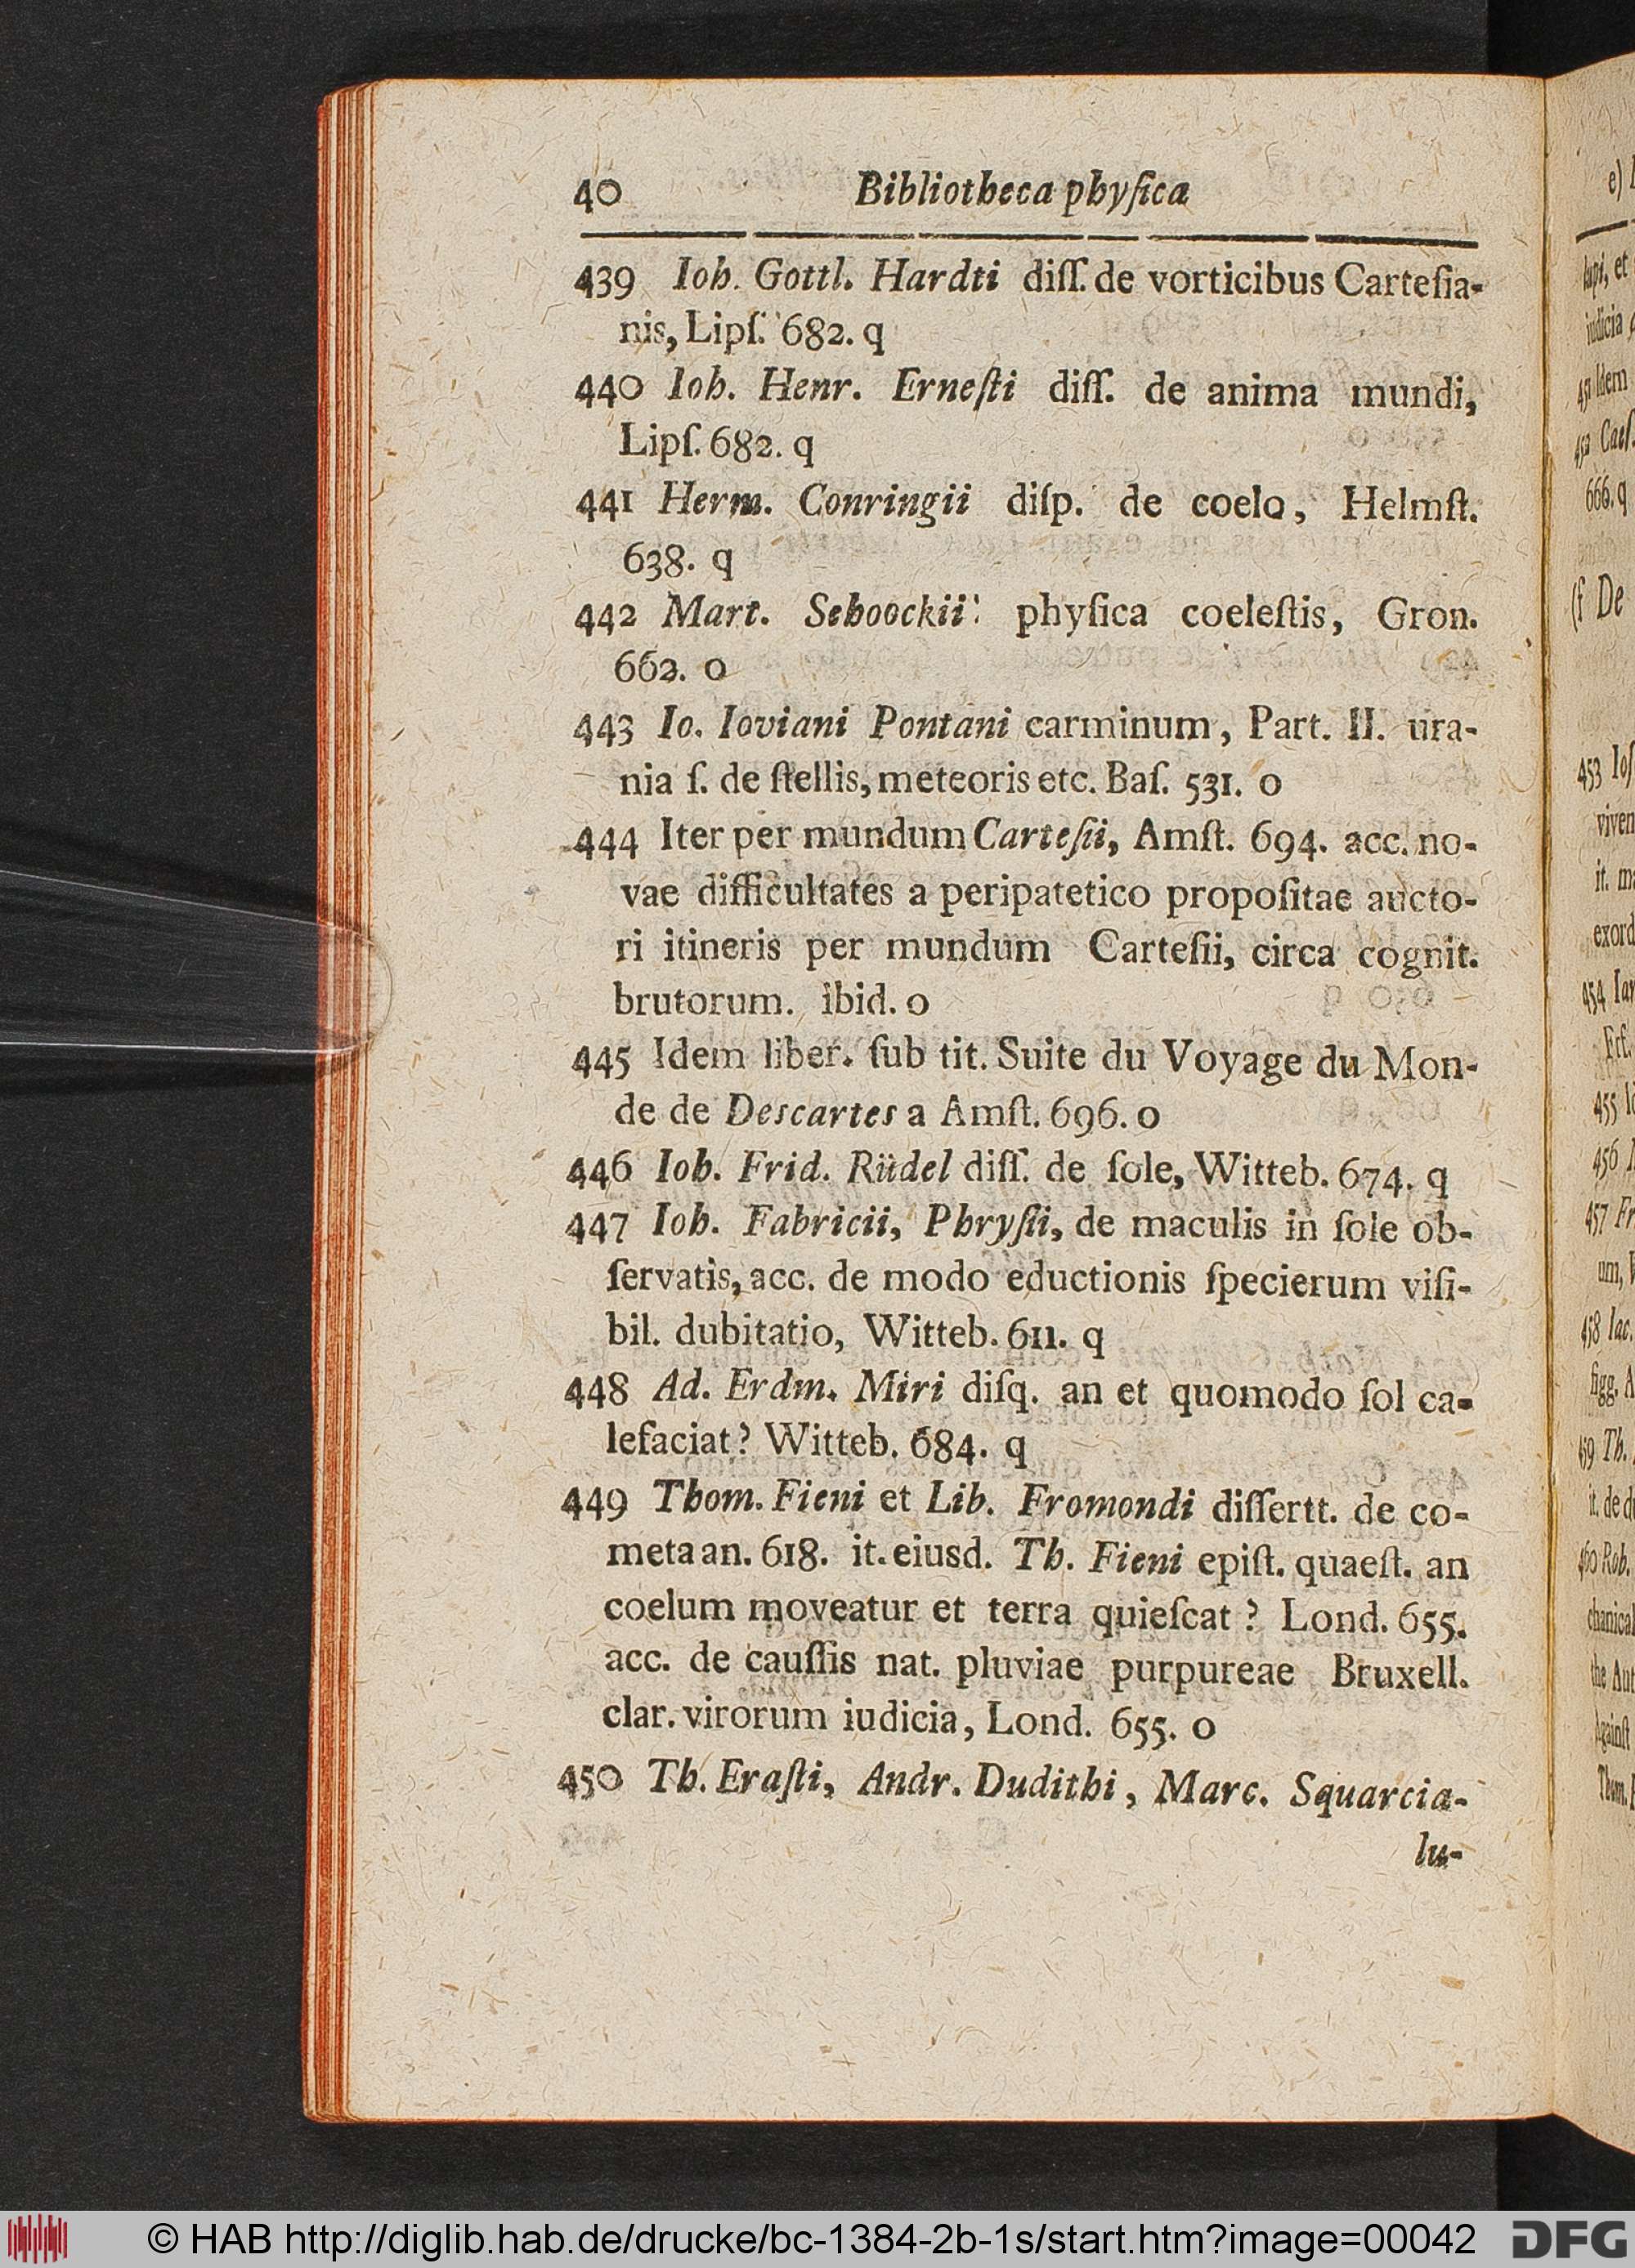 40 Bibliotheca phyſica
439 Ioh. Gottl. Hardti diſſ. de vorticibus Carteſia-
nis, Lipſ. 682. q
440 Ioh. Henr. Erneſti diſſ. de anima mundi,
Lipſ. 682. q
441 Herm. Conringii diſp. de coelo, Helmſt.
638. q
442 Mart. Schoockii: phyſica coeleſtis, Gron.
662. o
443 Io. Ioviani Pontani carminum, Part. II. ura-
nia ſ. de ſtellis, meteoris etc. Baſ. 531. o
444 Iter per mundum Carteſii, Amſt. 694. acc. no-
vae difficultates a peripatetico propoſitae aucto-
ri itineris per mundum Carteſii, circa cognit.
brutorum. ibid. o
445 Idem liber. ſub tit. Suite du Voyage du Mon-
de de Descartes a Amſt. 696. o
446 Ioh. Frid. Rüdel diſſ. de ſole, Witteb. 674. q
447 Ioh. Fabricii, Phryſii, de maculis in ſole ob-
ſervatis, acc. de modo eductionis ſpecierum viſi-
bil. dubitatio, Witteb. 611. q
448 Ad. Erdm. Miri diſq. an et quomodo ſol ca-
lefaciat? Witteb. 684. q
449 Thom. Fieni et Lib. Fromondi diſſertt. de co-
meta an. 618. it. eiusd. Th. Fieni epiſt. quaeſt. an
coelum moveatur et terra quieſcat? Lond. 655.
acc. de cauſſis nat. pluviae purpureae Bruxell.
clar. virorum iudicia, Lond. 655. o
450 Th. Eraſti, Andr. Dudithi, Marc. Squarcia-
lu-
e)
lupi, et
iudicia
451 Idem
452 Caeſ.
666. q
(f De
453 Ioſ
viven
it. ma
exord
454 Ian
Frf.
455
456
457 Fr
um,
458 Iac.
figg. A
459 Th.
it. de d
460 Rob.
chanical
the Aut
Againſt
Thom.
© HAB http://diglib.hab.de/drucke/bc-1384-2b-1s/start.htm?image=00042 DFG